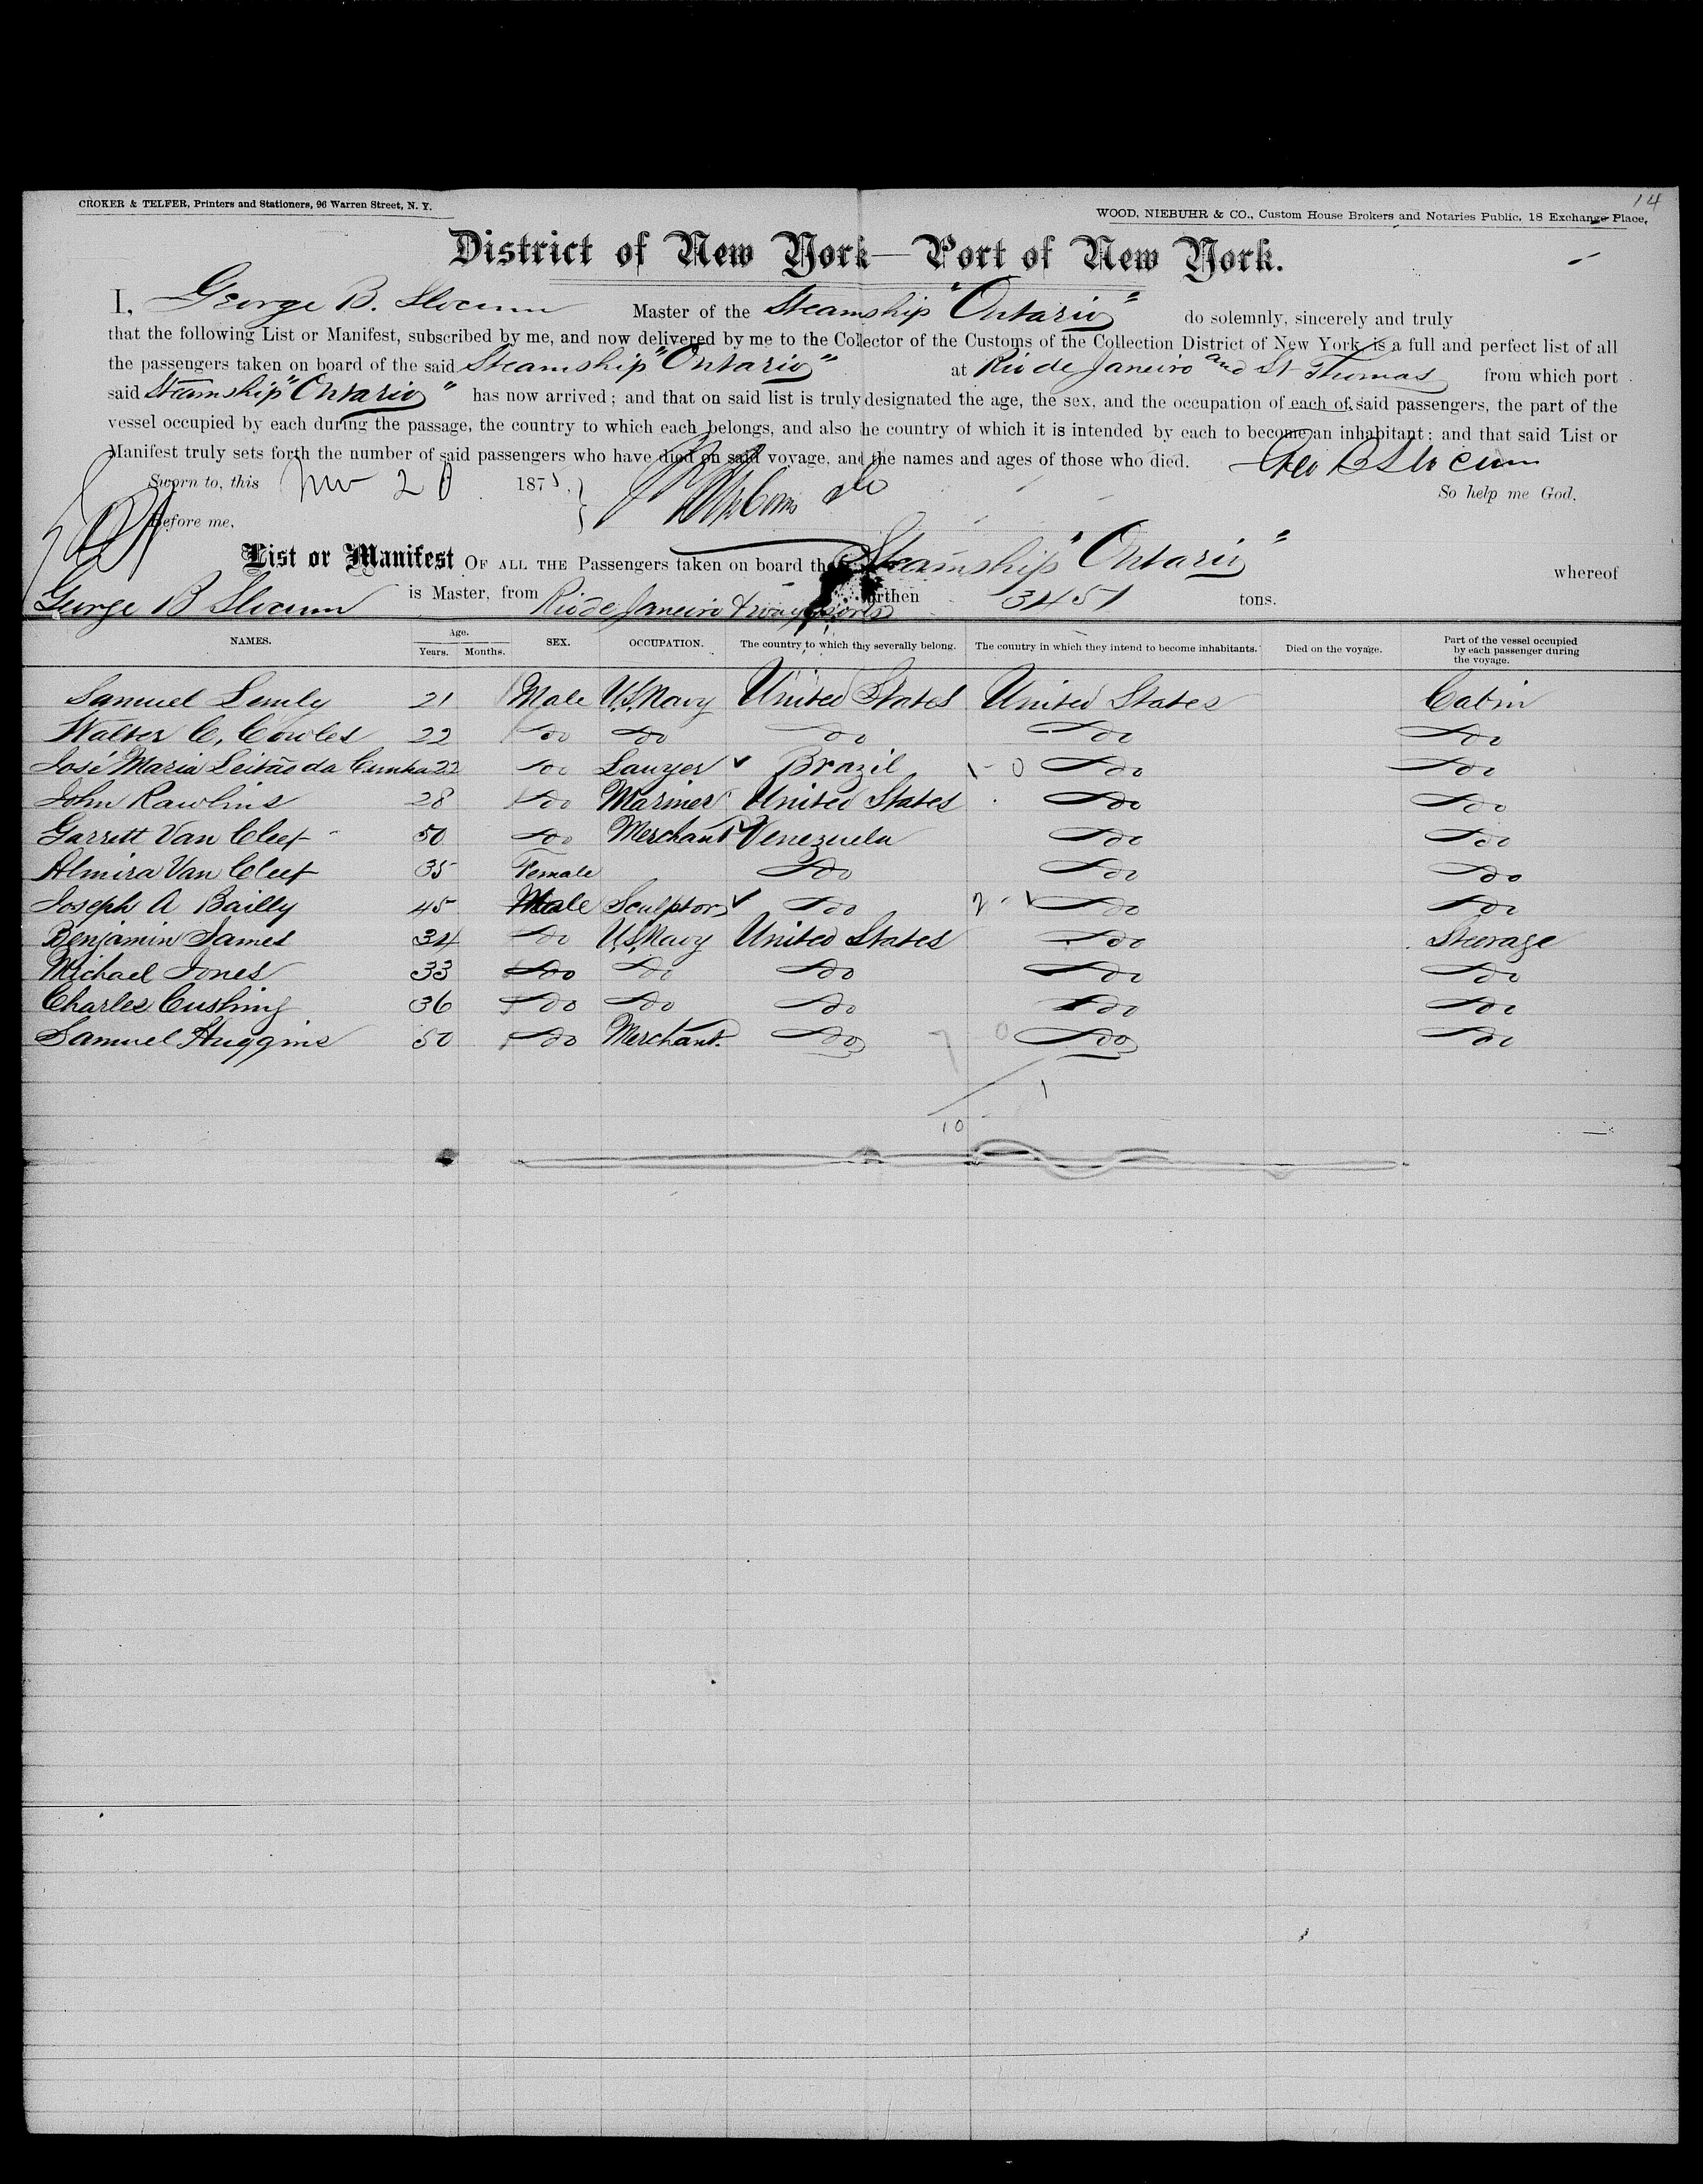 14
CROKER & TELFER, Printers and Stationers, 96 Warren Street, N. Y.
WOOD, NIEBUHR & CO., Custom House Brokers and Notaries Public, 18 Exchange Place,
District of New York—Port of New York.
I, George B. Slocum Master of the Steamship "Ontario" do solemnly, sincerely and truly
that the following List or Manifest, subscribed by me, and now delivered by me to the Collector of the Customs of the Collection District of New York, is a full and perfect list of all
the passengers taken on board of the said Steamship "Ontario" at Rio de Janeiro and St Thomas from which port
said Steamship "Ontario" has now arrived; and that on said list is truly designated the age, the sex, and the occupation of each of said passengers, the part of the
vessel occupied by each during the passage, the country to which each belongs, and also he country of which it is intended by each to become an inhabitant; and that said List or
Manifest truly sets forth the number of said passengers who have died on said voyage, and the names and ages of those who died. Geo B Slocum
Sworn to, this Nov 20 1875. So help me God.
Before me,
List or Manifest OF ALL THE Passengers taken on board the Steamship "Ontario" whereof
George B Slocum is Master, from Rio de Janeiro & way ports burthen 3451 tons.
NAMES. Age. Years. Months. SEX. OCCUPATION. The country to which they severally belong. The country in which they intend to become inhabitants. Died on the voyage. Part of the vessel occupied by each passenger during the voyage.
Samuel Lemly 21 Male U.S. Navy United States United States Cabin
Walter C. Cowles 22 do do do do do
José Maria Leitão da Cunha 22 do Lawyer Brazil do do
John Rawlins 28 do Mariner United States do do
Garrett Van Cleef 50 do Merchant Venezuela do do
Almira Van Cleef 35 Female do do do
Joseph A Bailly 45 Male Sculptor do do do
Benjamin James 34 do U.S. Navy United States do Steerage
Michael Jones 33 do do do do do
Charles Cushing 36 do do do do do
Samuel Huggins 50 do Merchant. do do do
1
10